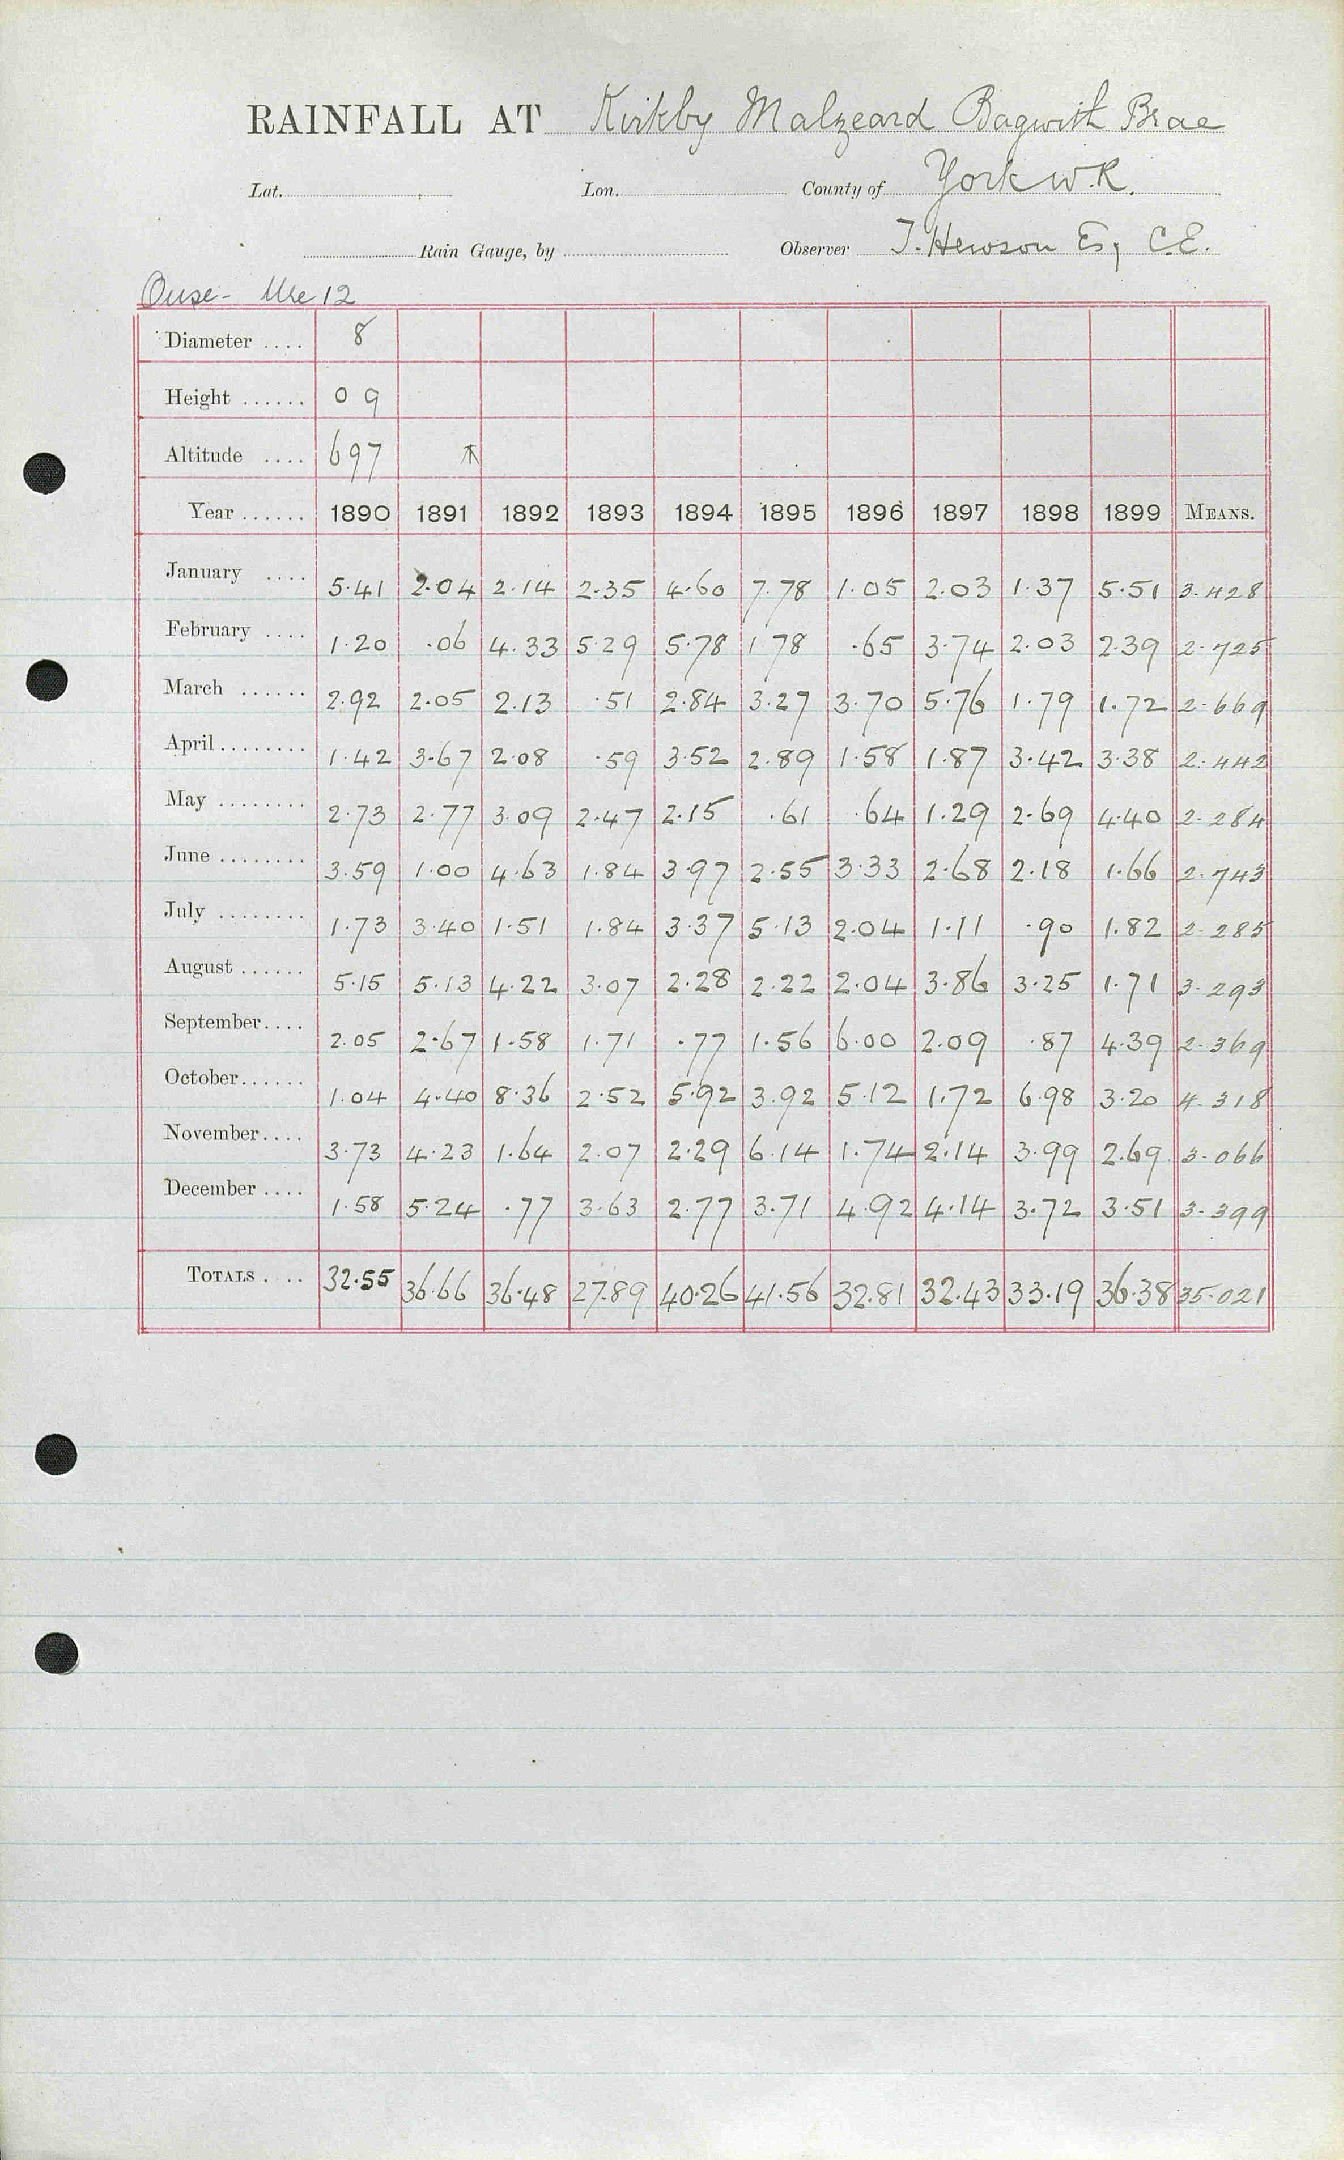 RAINFALL AT Kirkby Malzeard Bagwith Brae
Lat. Lon. County of York W.R.
Rain Gauge, by Observer T. Hewson Esq C.E.
Ouse - Ure 12
Diameter .... 8
Height ...... 0 9
Altitude .... 697
Year ...... 1890 1891 1892 1893 1894 1895 1896 1897 1898 1899 MEANS.
January .... 5.41 2.04 2.14 2.35 4.60 7.78 1.05 2.03 1.37 5.51 3.428
February .... 1.20 .06 4.33 5.29 5.78 1.78 .65 3.74 2.03 2.39 2.725
March ...... 2.92 2.05 2.13 .51 2.84 3.27 3.70 5.76 1.79 1.72 2.669
April ........ 1.42 3.67 2.08 .59 3.52 2.89 1.58 1.87 3.42 3.38 2.442
May ........ 2.73 2.77 3.09 2.47 2.15 .61 .64 1.29 2.69 4.40 2.284
June ........ 3.59 1.00 4.63 1.84 3.97 2.55 3.33 2.68 2.18 1.66 2.743
July ........ 1.73 3.40 1.51 1.84 3.37 5.13 2.04 1.11 .90 1.82 2.285
August ...... 5.15 5.13 4.22 3.07 2.28 2.22 2.04 3.86 3.25 1.71 3.293
September.... 2.05 2.67 1.58 1.71 .77 1.56 6.00 2.09 .87 4.39 2.369
October...... 1.04 4.40 8.36 2.52 5.92 3.92 5.12 1.72 6.98 3.20 4.318
November.... 3.73 4.23 1.64 2.07 2.29 6.14 1.74 2.14 3.99 2.69 3.066
December .... 1.58 5.24 .77 3.63 2.77 3.71 4.92 4.14 3.72 3.51 3.399
TOTALS .... 32.55 36.66 36.48 27.89 40.26 41.56 32.81 32.43 33.19 36.38 35.021